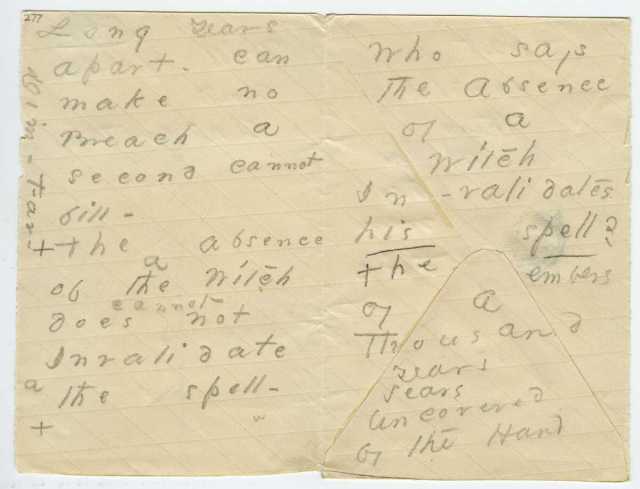 277
Long Years
apart - can
make no
Breach a
second cannot
fill -
+ The absence
a
of the Witch
cannot
does not
Invalidate
the spell -
Dim - Far -
a
+
Who says
The Absence
of a
Witch
In - validates
his spell?
The embers
of a
Thousand
Years
Years
Uncovered
by the Hand